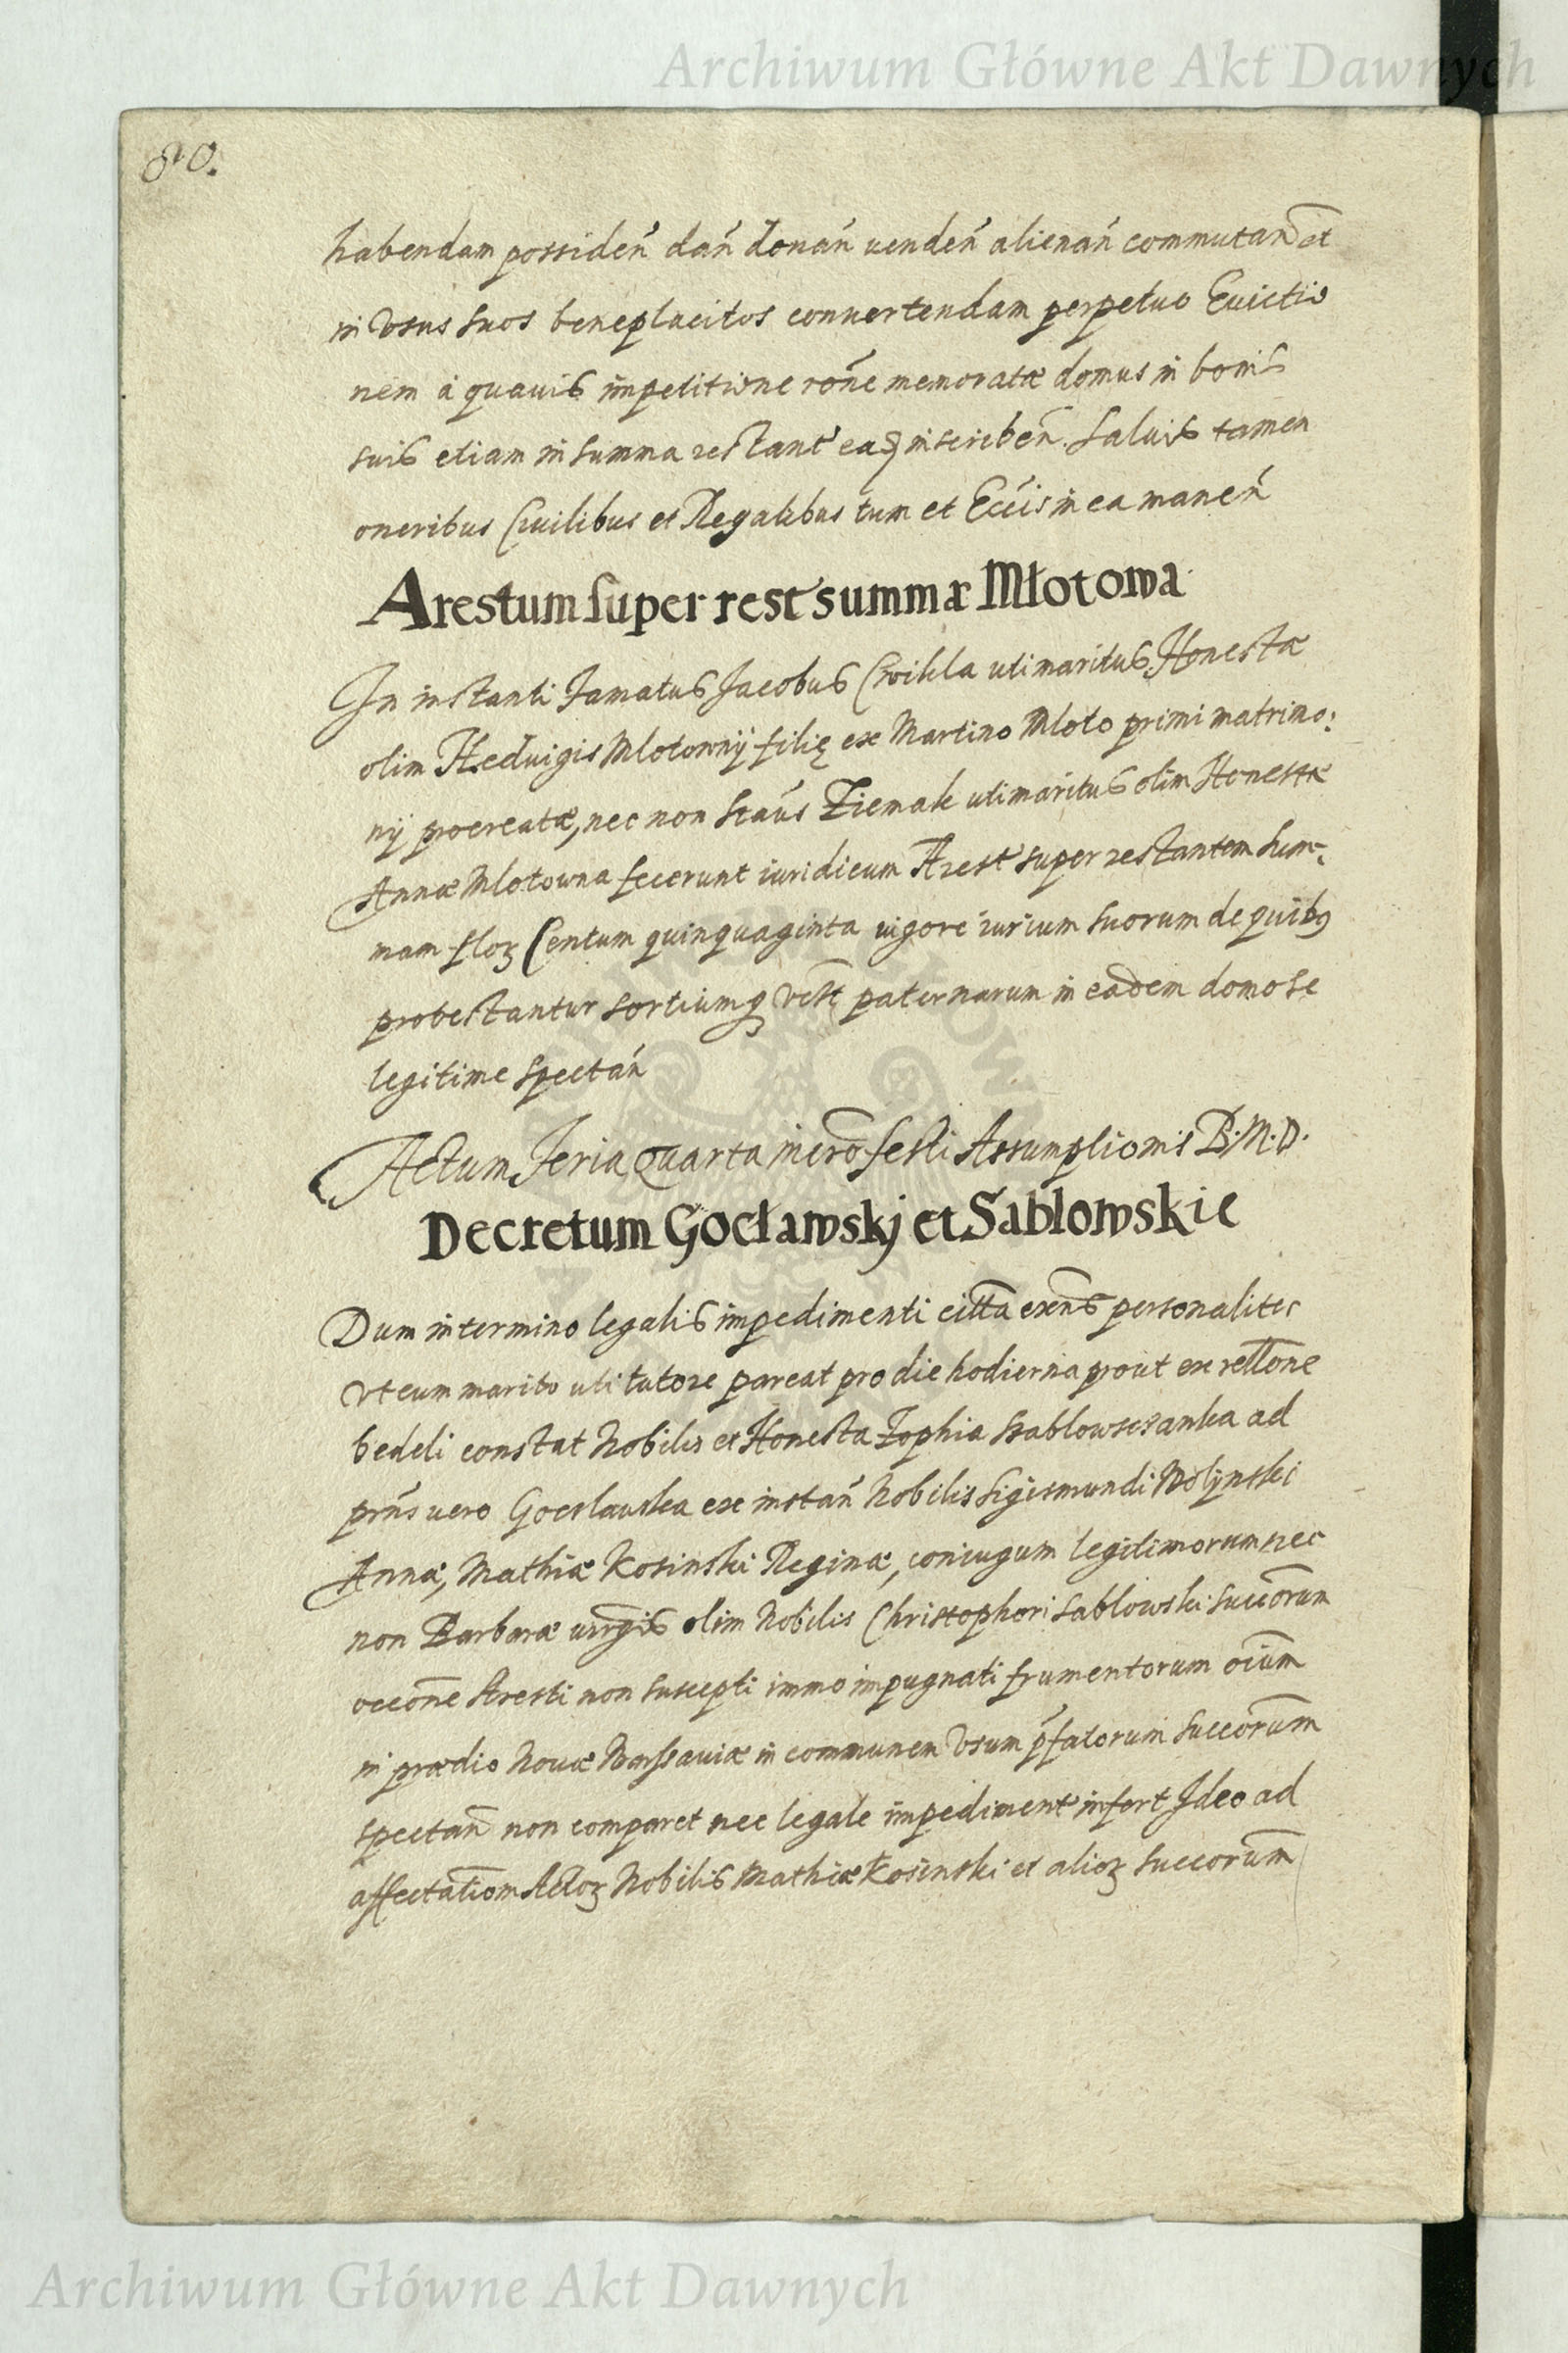 Archiwum Główne Akt Dawnych
80.
habendam possideñ dañ donañ uendeñ alienañ commutañ et
in Vsus suos beneplacitos conuertendam perpetuo Euictio
nem a quauis impetitione rõne memoratæ domus in bonis
suis etiam in summa restant inscribeñ. Saluis tamen
oneribus Ciuilibus et Regalibus tum et Ecc̃is in ea maneñ
Arestum super rest summæ Młotowa
In instanti Famatus Jacobus Cwikla uti maritus Honestæ
olim Heduigis Mlotowny filię ex Martino Mloto primi matrimo:
nij procreatæ, nec non Staũs Ziemak uti maritus olim Honestæ
Annæ Mlotowna fecerunt iuridicum Arest super restantem sum-
mam floz Centum quinquaginta uigore iurium suorum de quibq
protestantur sortiumq paternarum in eadem domo se
legitime spectañ
Actum Feria Quarta in crõ festi Assumptionis B. M. V.
Decretum Gocławskj et Sablowskie
Dum in termino legalis impedimenti citta exens personaliter
vt cum marito uti tutore pareat pro die hodierna prout ex rellone
bedeli constat Nobilis et Honesta Zophia ad
prñs uero Goclauska ex instañ Nobilis Sigismundi Wolynski
Annæ, Mathiæ Kosinski Reginæ, coniugum legitimorum nec
non Barbaræ uirgis olim Nobilis Christophori Sablowski succorum
occone Aresti non suscepti immo impugnati frumentorum oium
in prædio Nouæ Warssauiæ in communem Vsum pfatorum succorum
spectañ non comparet nec legale impediment infert Ideo ad
affectationem Actoz Nobilis Mathiæ Kosinski et alioz succorum
Archiwum Główne Akt Dawnych